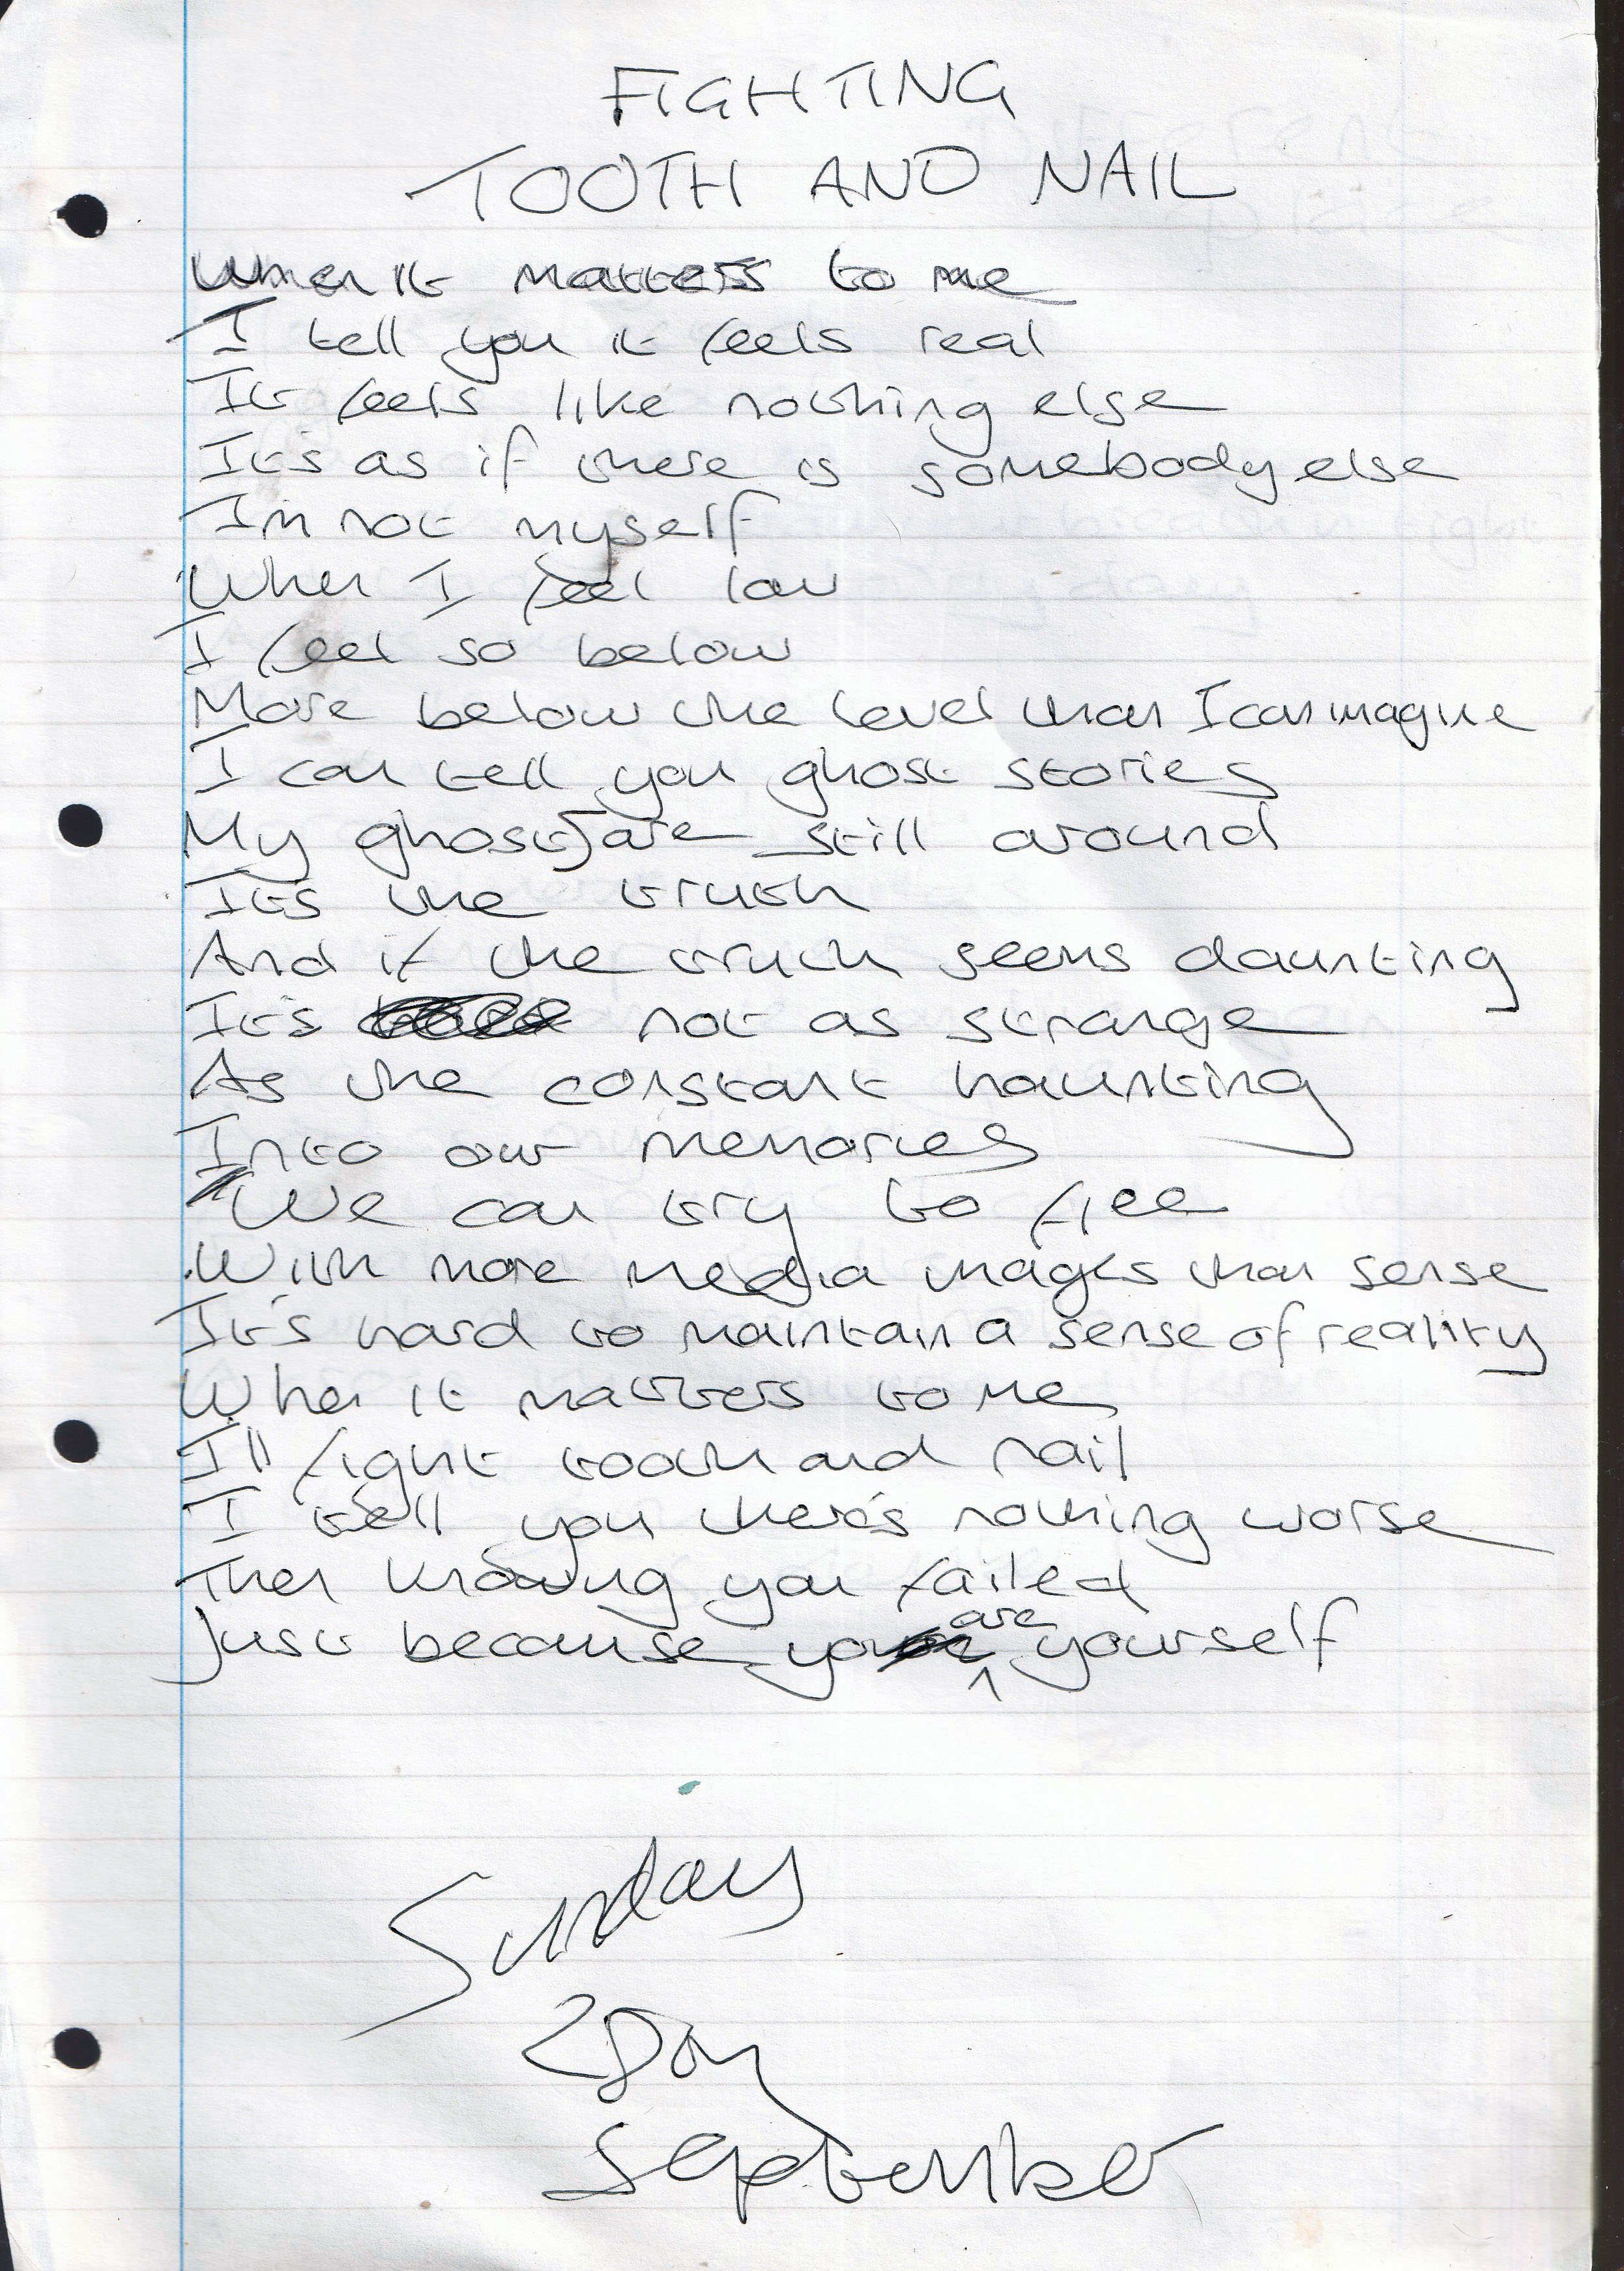 FIGHTING
TOOTH AND NAIL
When it matters to me
I tell you it feels real
It feels like nothing else
It's as if there is somebody else
I'm not myself
When I feel low
I feel so below
More below the level than I can imagine
I can tell you ghost stories
My ghosts are still around
It's the truth
And if the truth seems daunting
It's not as strange
As the constant haunting
Into our memories
We can try to flee
With more media images than sense
It's hard to maintain a sense of reality
When it matters to me
I'll fight tooth and nail
I tell you there's nothing worse
Then knowing you failed
Just because you are yourself
Sunday
September